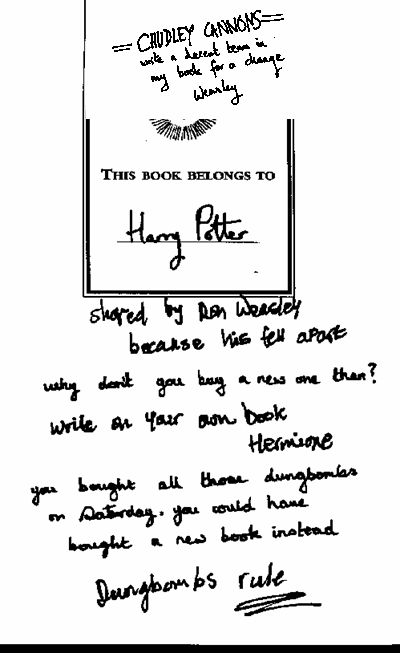 = CHUDLEY CANNONS =
write a decent team in
my book for a change
Weasley
THIS BOOK BELONGS TO
Harry Potter
shared by Ron Weasley
because his fell apart
why don't you buy a new one then?
write on your own book
Hermione
you bought all those dungbombs
on Saturday. you could have
bought a new book instead
Dungbombs rule